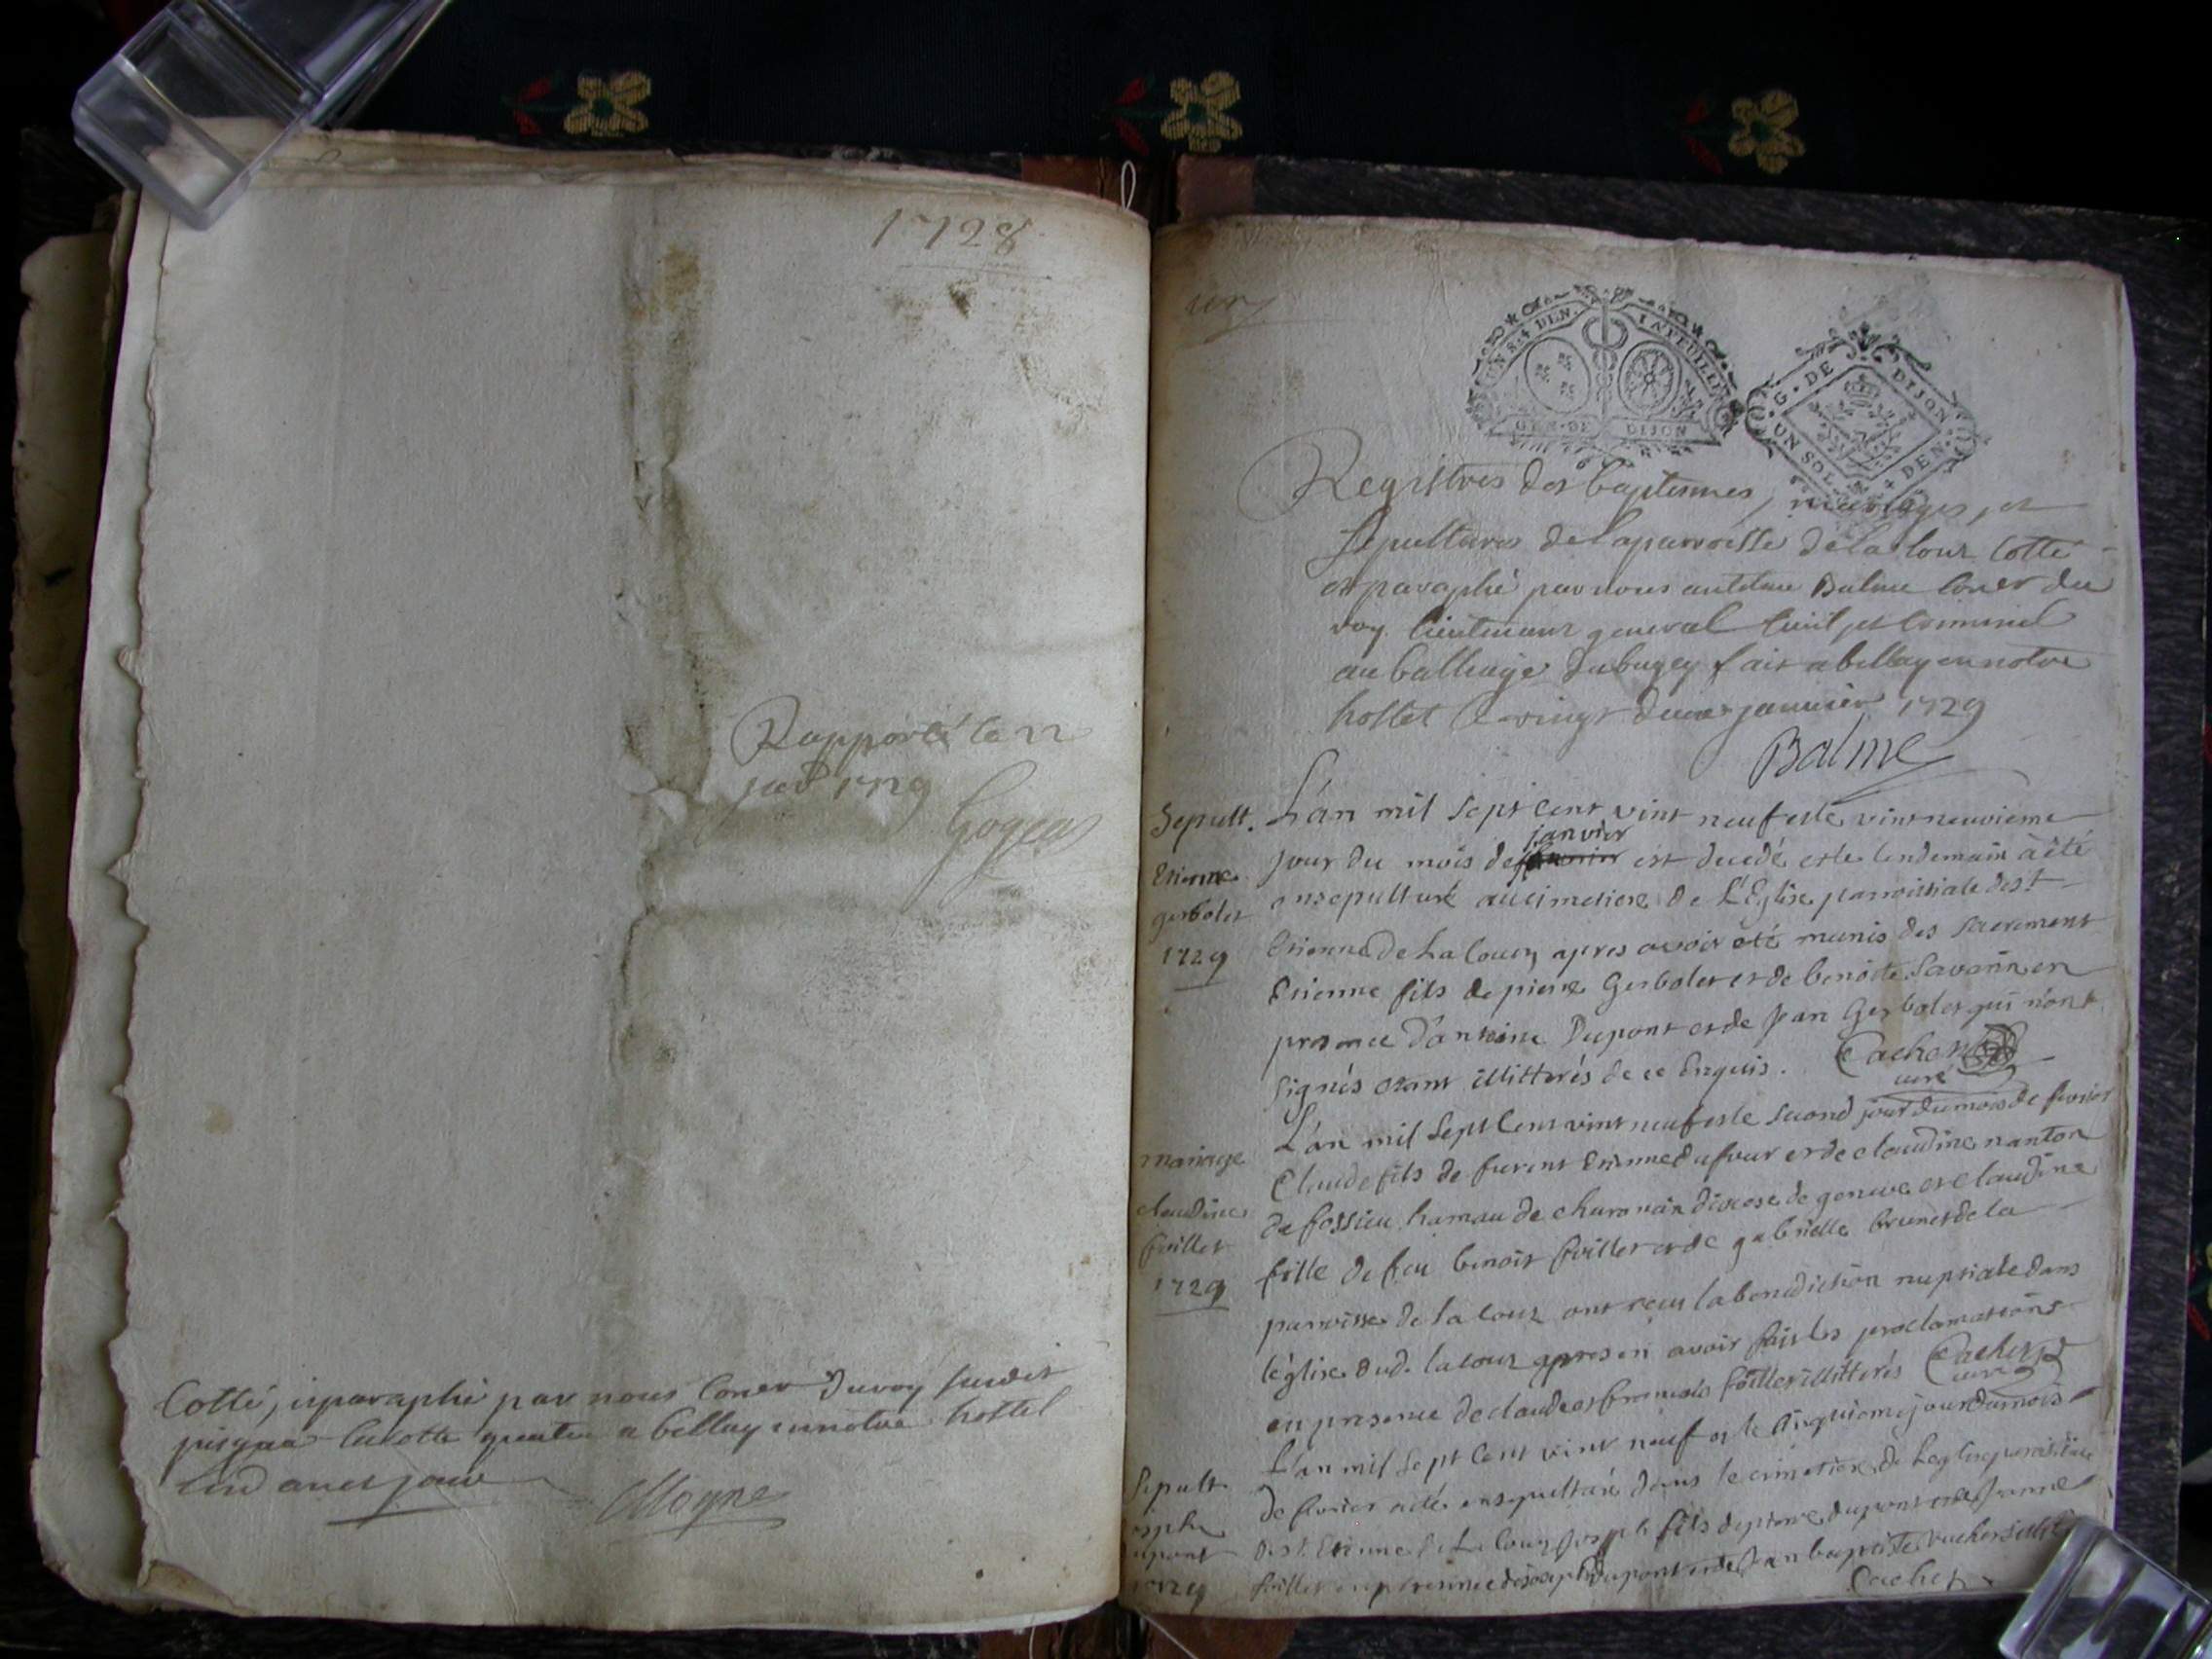 1728
Rapporté le 22
janv 1729
Cotté, et paraphé par nous Coner du roy susdit
jusques cecotte quatre a bellay en notre hostel
lesd an et jour
un
UN S. 4 DEN. LA FEUILLE
GEN. DE DIJON
G. DE DIJON
UN SOL. 4 DEN.
Registres des baptesmes, mariages, et
sepultures de la parroisse de la Cour Cotté
et paraphé par nous antelme Balme Coner du
roy lieutenant general Civil et Criminel
au balliage du bugey fait a bellay en notre
hostel le vingt deux janvier 1729
Balme
Sepult.
Etienne
gerbolet
1729
L'an mil sept cent vint neuf et le vint neuvieme
janvier
jour du mois de est decedé et le lendemain à été
ensepulturé au cimetiere de L'Eglise parroissiale de st
Etienne de La Cour, apres avoir été munis des sacrement
Etienne fils de pierre Gerbolet et de benoite Savarin en
presence d'antoine Dupont et de Jean Gerbolet qui n'ont
signés étant illitterés de ce Enquis. Cachet
curé
mariage
claudine
fuillet
1729
L'an mil sept Cent vint neuf et le second jour du mois de fevrier
Claude fils de furent Etienne dufour et de claudine nanton
de fossieu hameau de diocese de geneve et claudine
fille de feu benoit fuillet et de gabrielle brunet de la
parroisse de la cour ont reçu la benediction nuptiale dans
léglise dud. la cour apres en avoir fait les proclamations
en presence de claude et francois fuillet illitterés Cachet
curé
Sepult
joseph
dupont
1729
L'an mil sept Cent vint neuf et le cinquieme jour du mois
de fevrier a été ensepulturé dans le cimetiere de Leglise parroissiale
de st. Etienne de La Cour joseph fils de pierre dupont et de jeanne
fuillet en presence de joseph Dupont et de jean baptiste
Cachet